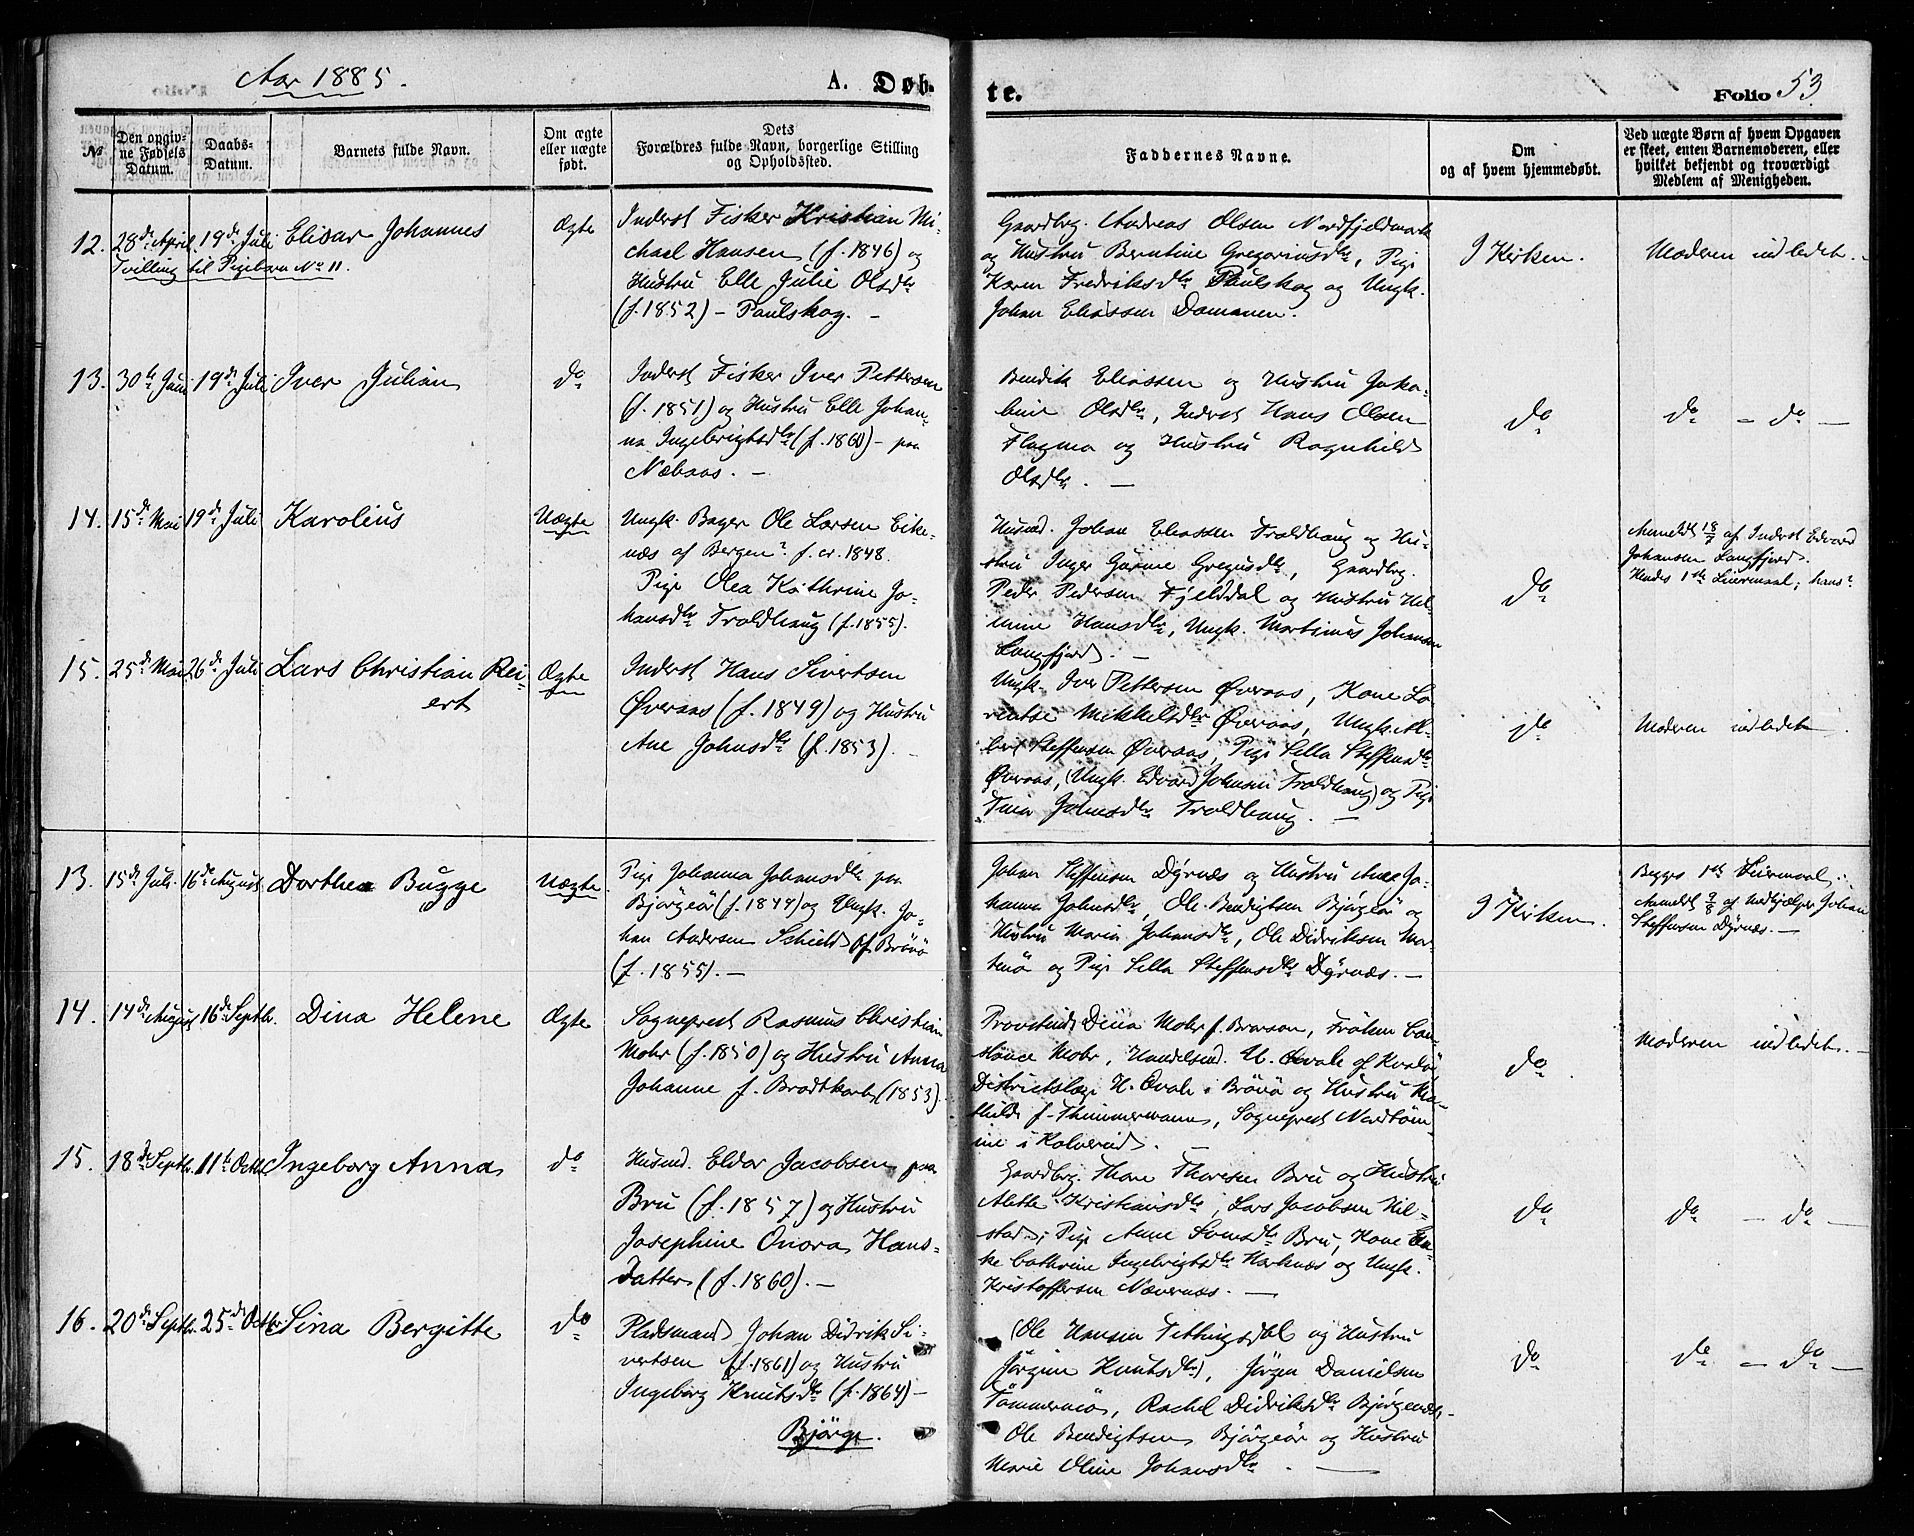 Aar 1885.
A. Døbte.
Folio 53
№
Den opgivne Fødsels Datum.
Daabs-Datum.
Barnets fulde Navn.
Om ægte eller uægte født.
Dets Forældres fulde Navn, borgerlige Stilling og Opholdssted.
Faddernes Navne.
Om og af hvem hjemmedøbt.
Ved uægte Børn af hvem Opgaven er skeet, enten Barnemoderen, eller hvilket bekjendt og troværdigt Medlem af Menigheden.
12. 28de April 19de Juli Elisar Johannes Ægte
Tvilling til Pigebarn No 11.
Inderst Fisker Kristian Mi-
chael Hansen (f. 1846) og
Hustru Elle Julie Olsdtr
(f. 1852) - Paulskog. -
Gaardbrg. Andreas Olsen Nordfjeldmark
og Hustru Berntine Gregoriusdtr, Pige
Karen Fredriksdtr Paulskog og Ungk.
Johan Eliassen Damanen.
I Kirken.
Moderen indledet. -
13. 30te Juni 19de Juli Iver Julian do
Inderst Fisker Iver Pettersen
(f. 1851) og Hustru Elle Johan-
na Ingebrigtsdtr (f. 1860) - paa
Næbaas. -
Bendik Eliassen og Hustru Jako-
bine Olsdtr, Inderst Hans Olsen
Flagma og Hustru Ragnhild
Olsdtr. -
do
do - do -
14. 15de Mai 19de Juli Karolius Uægte
Ungk. Bager Ole Larsen Eike-
næs af Bergen? f. cr. 1848.
Pige Olea Kathrine Jo-
hansdtr Troldhaug (f. 1855).
Husmd. Johan Eliassen Troldhaug og Hu-
stru Inger Gurine Gregusdtr, Gaardbrg.
Peder Pedersen Fjelddal og Hustru Hel-
mine Hansdtr, Ungk. Martinus Johansen
Langfjord. -
do
Anmeldt 18/7 af Inderst Edvard
Johansen Langfjord.
Hendes 1ste Leiermaal; hans?
15. 25de Mai 26de Juli Lars Christian Rei-
ert Ægte
Inderst Hans Sivertsen
Øveraas (f. 1849) og Hustru
Ane Johnsdtr (f. 1853). -
Ungk. Iver Pettersen Øveraas, Kone Lo-
rentse Mikkelsdtr Øveraas, Ungk. Al-
bert Steffensen Øveraas, Pige Sella Steffensdtr
Øveraas, (Ungk. Edvard Johnsen Troldhaug) og Pige
Trina Johnsdtr Troldhaug. -
do
Moderen indledet.
13. 15de Juli 16de August Dorthea Bugge Uægte
Pige Johanna Johansdtr paa
Bjørgeør (f. 1844) og Ungk. Jo-
han Andersen Schield af Brønø
(f. 1855). -
Johan Steffensen Dyrnæs og Hustru Ane Jo-
hanna Johnsdtr, Ole Bendigtsen Bjørgeør og
Hustru Marie Johansdtr, Ole Didriksen
og Pige Sella Steffensdtr Dyrnæs. -
I Kirken.
Begges 1ste Leiermaal.
Anmeldt 9/8 af Medhjælper Johan
Steffensen Dyrnæs. -
14. 14de August 16de Septbr. Dina Helene Ægte
Sogneprest Rasmus Christian
Mohr (f. 1850) og Hustru Anna
Johanne f. Brodtkorb (1853).
Provstinde Dina Mohr f. , Frøken Con-
stance Mohr, Handelsmd. U. Qvale af Kvaløi,
Districtslæge H. Qvale i Brønø og Hustru Ma-
thilde f. Thimmermann, Sogneprest Nordtøm-
me i Kolvereid. -
do
Moderen indledet. -
15. 18de Septbr. 11te Octbr Ingeborg Anna do
Husmd. Eldor Jacobsen paa
Bru (f. 1857) og Hustru
Josephine Onora Hans-
datter (f. 1860). -
Gaardbrg. Thore Thoresen Bru og Hustru
Alette Kristiansdtr, Lars Jacobsen Hil-
stad, Pige Anne Bru, Kone
Cathrine Ingebrigtsdtr Horknæs og Ungk.
Kristoffersen Nævernæs. -
do
do - do -
16. 20de Septbr. 25de Octbr Sina Bergitte do
Pladsmand Johan Didrik Si-
vertsen (f. 1861) og Hustru
Ingeborg Knutsdtr (f. 1864) -
Bjørge.
(Ole Hansen Tettingsdal og Hustru
Jørgine Knutsdtr), Jørgen Danielsen
Tømmerneø, Rachel Didriksdtr Bjørgenæs,
Ole Bendigtsen Bjørgeør og Hustru
Marie Oline Johansdtr. -
do
do - do -